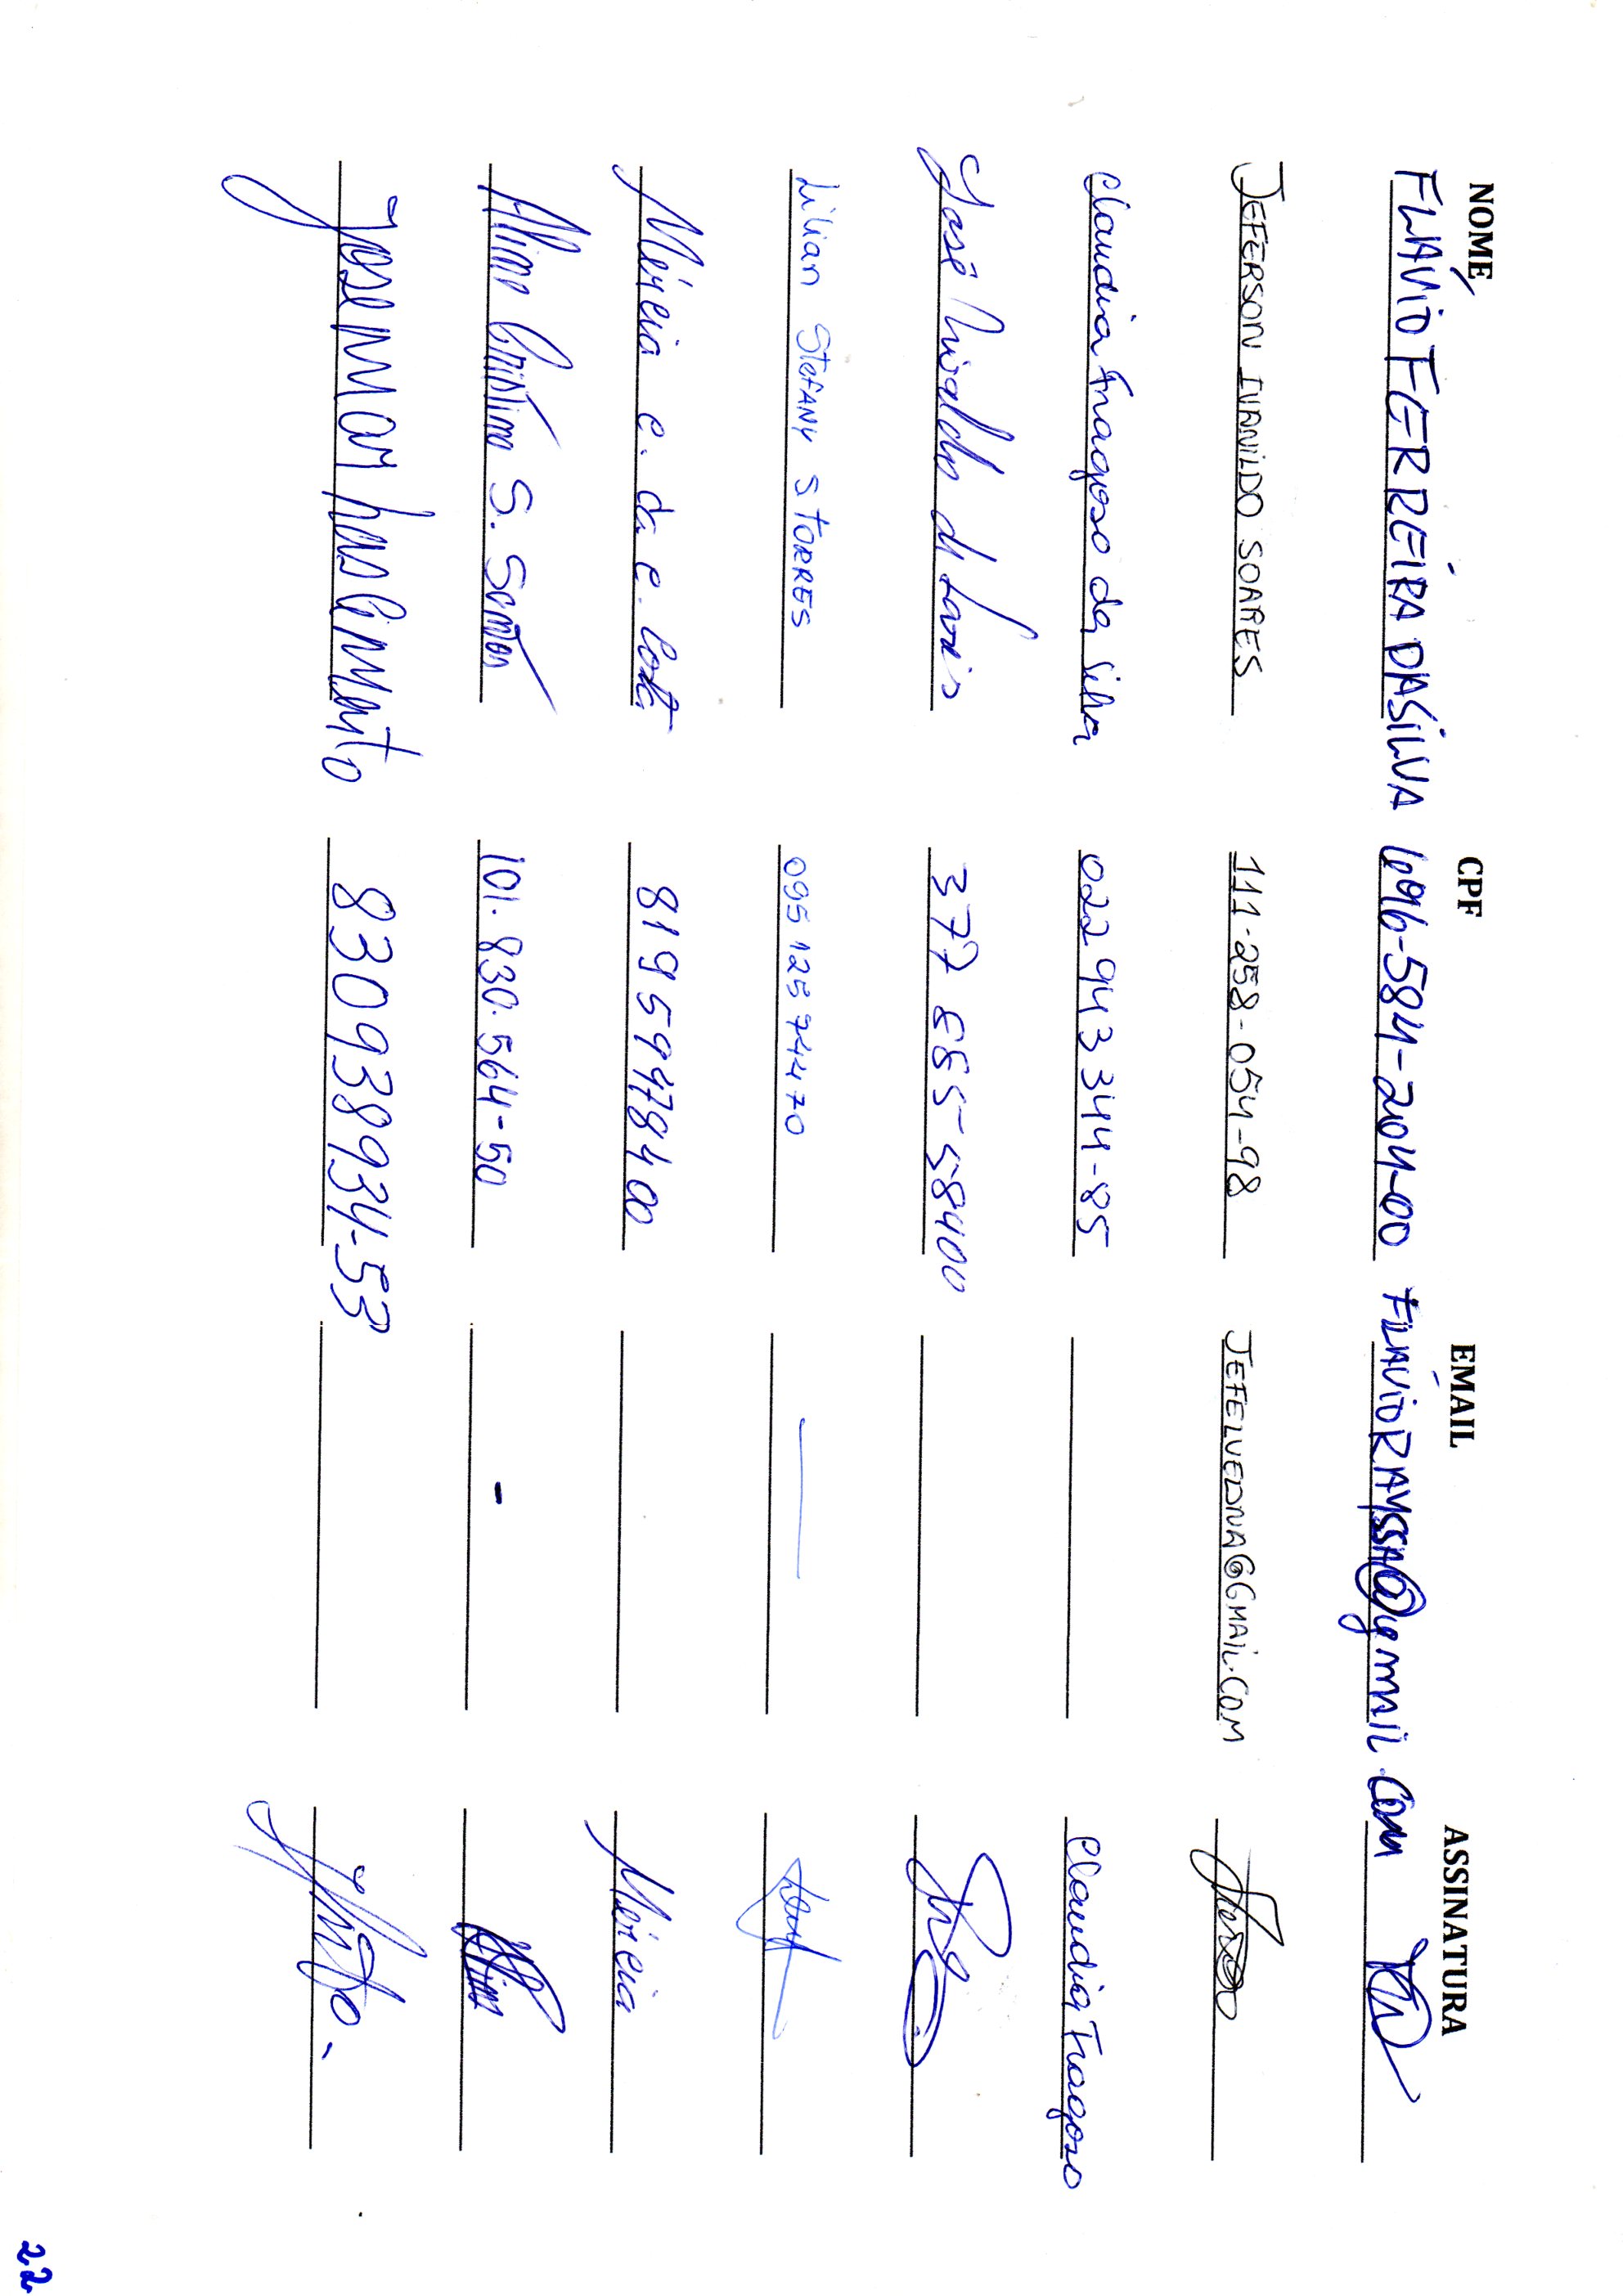 NOME CPF EMAIL ASSINATURA
FLAVIO FERREIRA DA SILVA 696-584-204-00 FLAVIORAYSSA@gmail.com
JEFERSON IVANILDO SOARES 111-258-054-98 JEFELUEDNA@GMAIL.COM
Claudia Fragoso da Silva 022 943 344-85 Claudia Fragoso
José Nivaldo de 377 855-58400
Lilian STEFANY S TORRES 095 125 744 70
Mércia C. da C. Costa 819 59 978400 Mércia
Aline Cristina S. Santos 101.830.564-50
Josemar nascimento 830938934-53
22